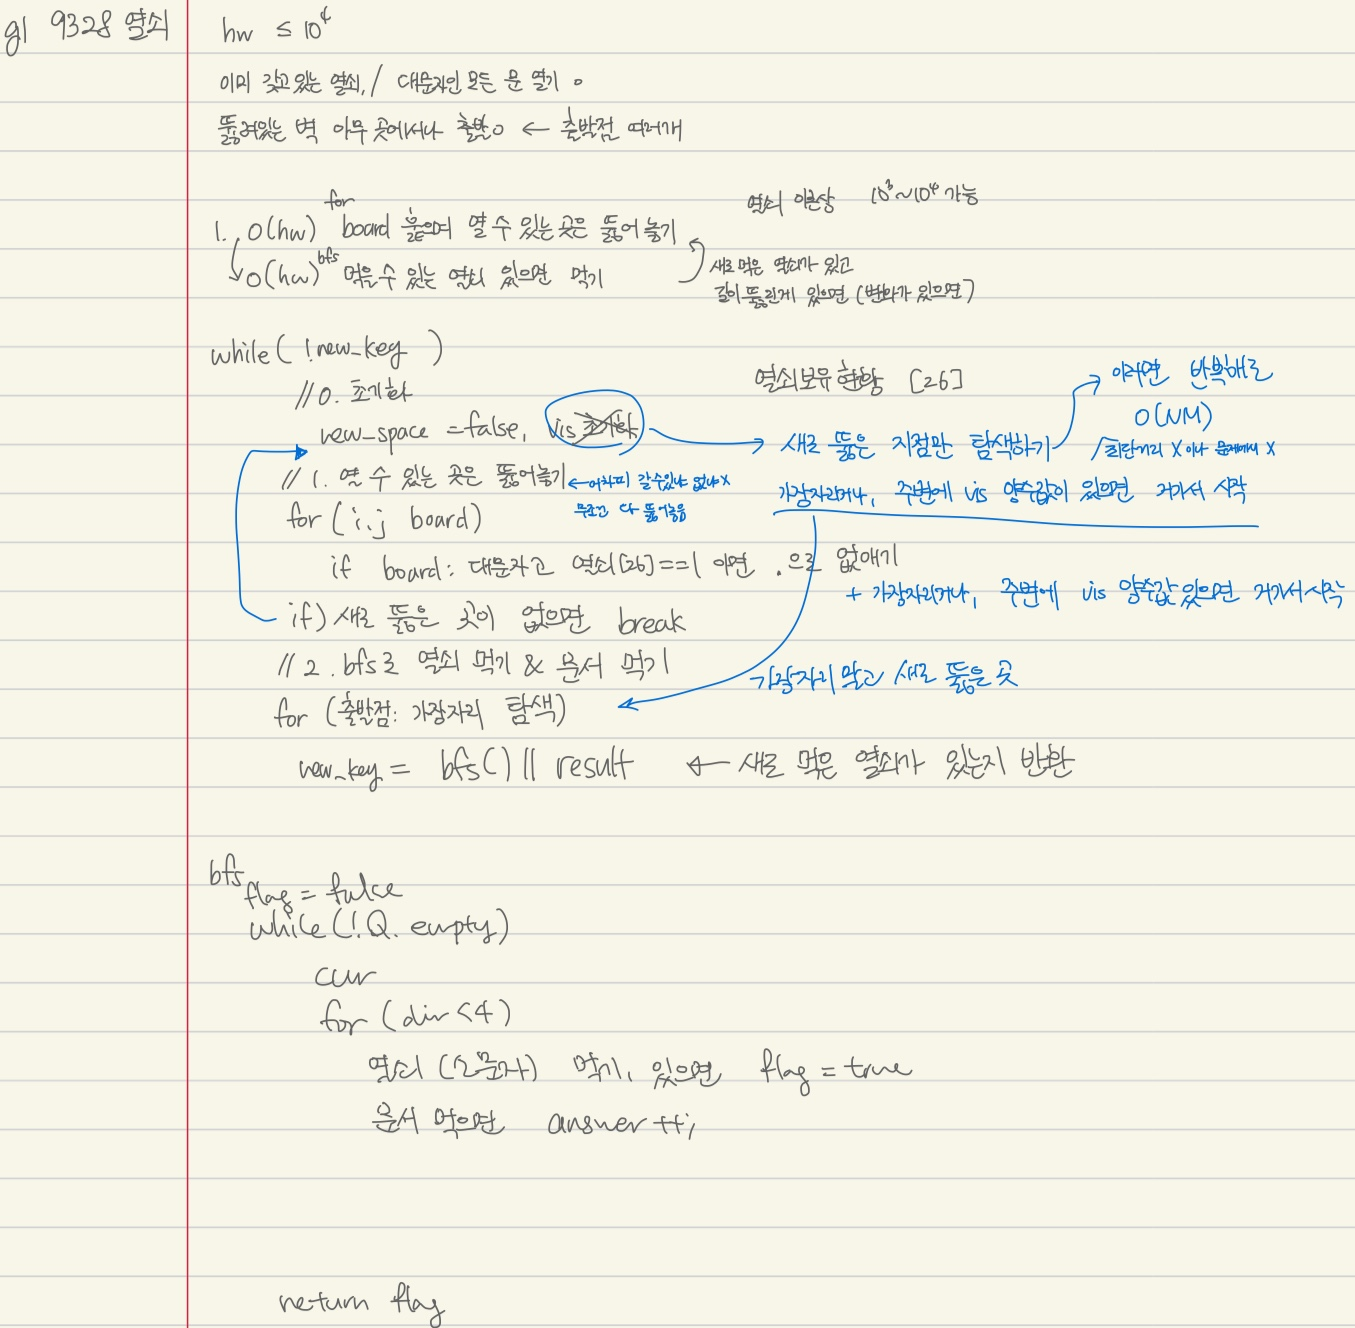 g1 9328 열쇠
hw ≤ 10⁴
이미 갖고있는 열쇠, / 대문자인 모든 문 열기 o
뚫려있는 벽 아무 곳에서나 출발o ← 출발점 여러개
열쇠 이론상 10³~10⁴ 가능
1. O(hw) for board 훑으며 열 수 있는 곳은 뚫어 놓기
O(hw) bfs 먹을수 있는 열쇠 있으면 먹기
새로 먹은 열쇠가 있고
길이 뚫린게 있으면 (변화가 있으면)
while( !new_key )
//0. 초기화
열쇠보유 현황 [26]
이러면 반복해도
O(NM)
new_space = false, vis 초기화
새로 뚫은 지점만 탐색하기
최단거리 X 이나 문제에서 X
// 1. 열 수 있는 곳은 뚫어놓기
←어차피 갈수있나 없나 X
무조건 다 뚫어놓음
가장자리거나, 주변에 vis 양수값이 있으면 거기서 시작
for (i.j board)
if board: 대문자고 열쇠[26]==1 이면 .으로 없애기
+ 가장자리거나, 주변에 vis 양수값 있으면 거기서 시작
if) 새로 뚫은 곳이 없으면 break
// 2. bfs로 열쇠 먹기 & 문서 먹기
가장자리 말고 새로 뚫은 곳
for (출발점: 가장자리 탐색)
new_key = bfs() || result ← 새로 먹은 열쇠가 있는지 반환
bfs
flag = false
while(!Q. empty)
cur
for (dir<4)
열쇠 (소문자) 먹기, 있으면 flag = true
문서 먹으면 answer ++;
return flag